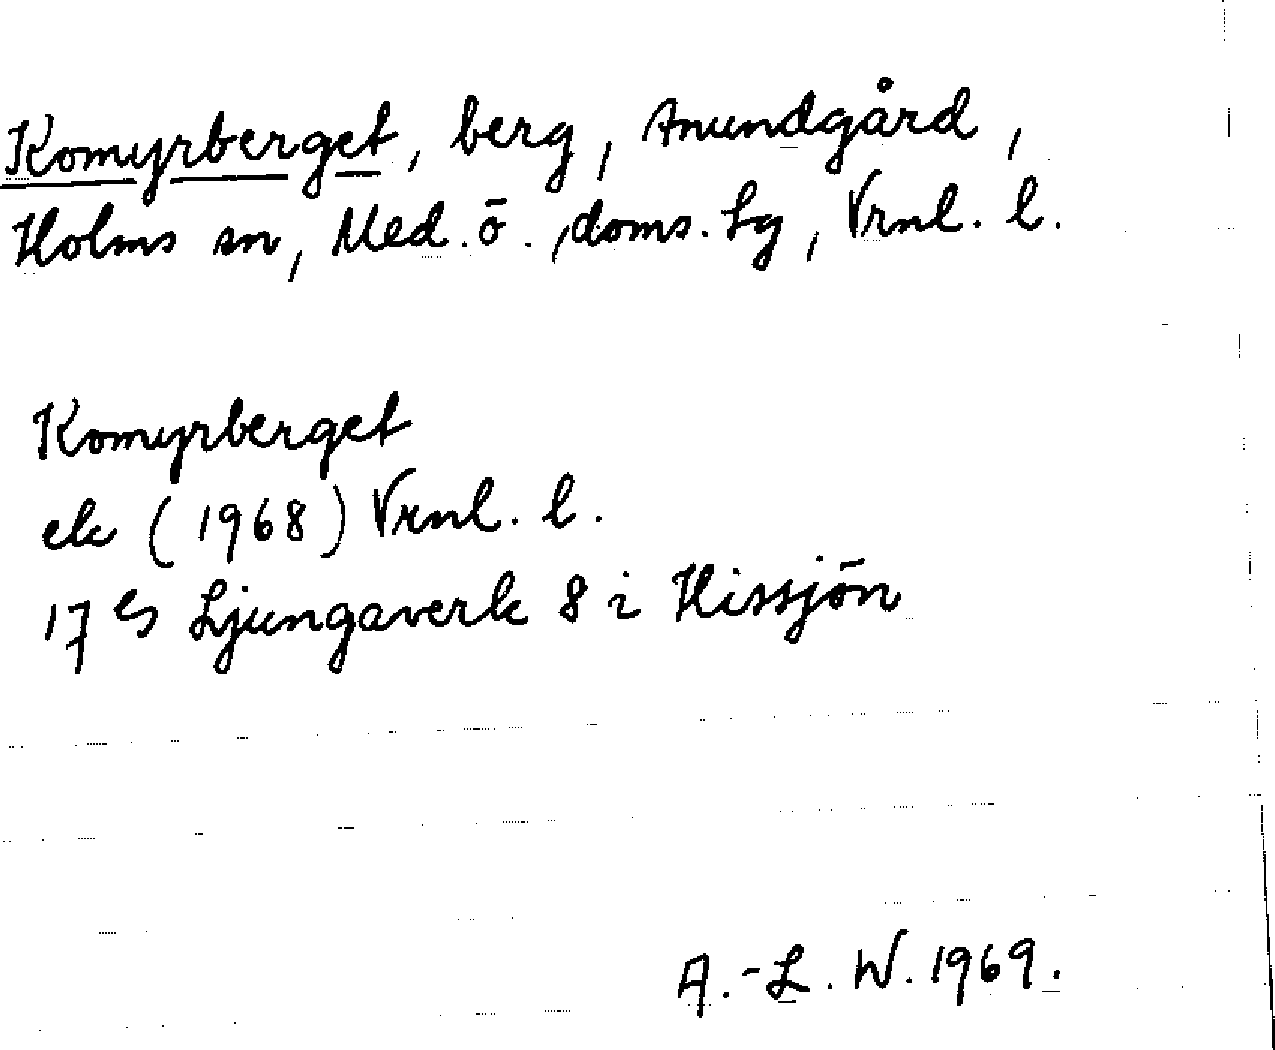 Komyrberget, berg, Anundgård,
Holms sn, Med. ö., doms. Lg, Vrnl. l.
Komyrberget
ek (1968) Vrnl. l.
17 es Ljungaverk 8 i Hissjön
A.-L. W. 1969.